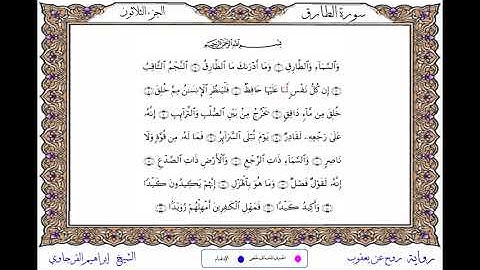 سورة الطارق
الجزء الثلاثون
بِسْمِ اللَّهِ الرَّحْمَٰنِ الرَّحِيمِ
وَالسَّمَاءِ وَالطَّارِقِ ١ وَمَا أَدْرَىٰكَ مَا الطَّارِقُ ٢ النَّجْمُ الثَّاقِبُ
٣ إِن كُلُّ نَفْسٍ لَمَا عَلَيْهَا حَافِظٌ ٤ فَلْيَنظُرِ الْإِنسَٰنُ مِمَّ خُلِقَ ٥
خُلِقَ مِن مَّاءٍ دَافِقٍ ٦ يَخْرُجُ مِنۢ بَيْنِ الصُّلْبِ وَالتَّرَائِبِ ٧ إِنَّهُ
عَلَىٰ رَجْعِهِ لَقَادِرٌ ٨ يَوْمَ تُبْلَى السَّرَائِرُ ٩ فَمَا لَهُ مِن قُوَّةٍ وَلَا
نَاصِرٍ ١٠ وَالسَّمَاءِ ذَاتِ الرَّجْعِ ١١ وَالْأَرْضِ ذَاتِ الصَّدْعِ ١٢
إِنَّهُ لَقَوْلٌ فَصْلٌ ١٣ وَمَا هُوَ بِالْهَزْلِ ١٤ إِنَّهُمْ يَكِيدُونَ كَيْدًا
١٥ وَأَكِيدُ كَيْدًا ١٦ فَمَهِّلِ الْكَٰفِرِينَ أَمْهِلْهُمْ رُوَيْدًا ١٧
رواية روح عن يعقوب
الشيخ إبراهيم الفرجاوي